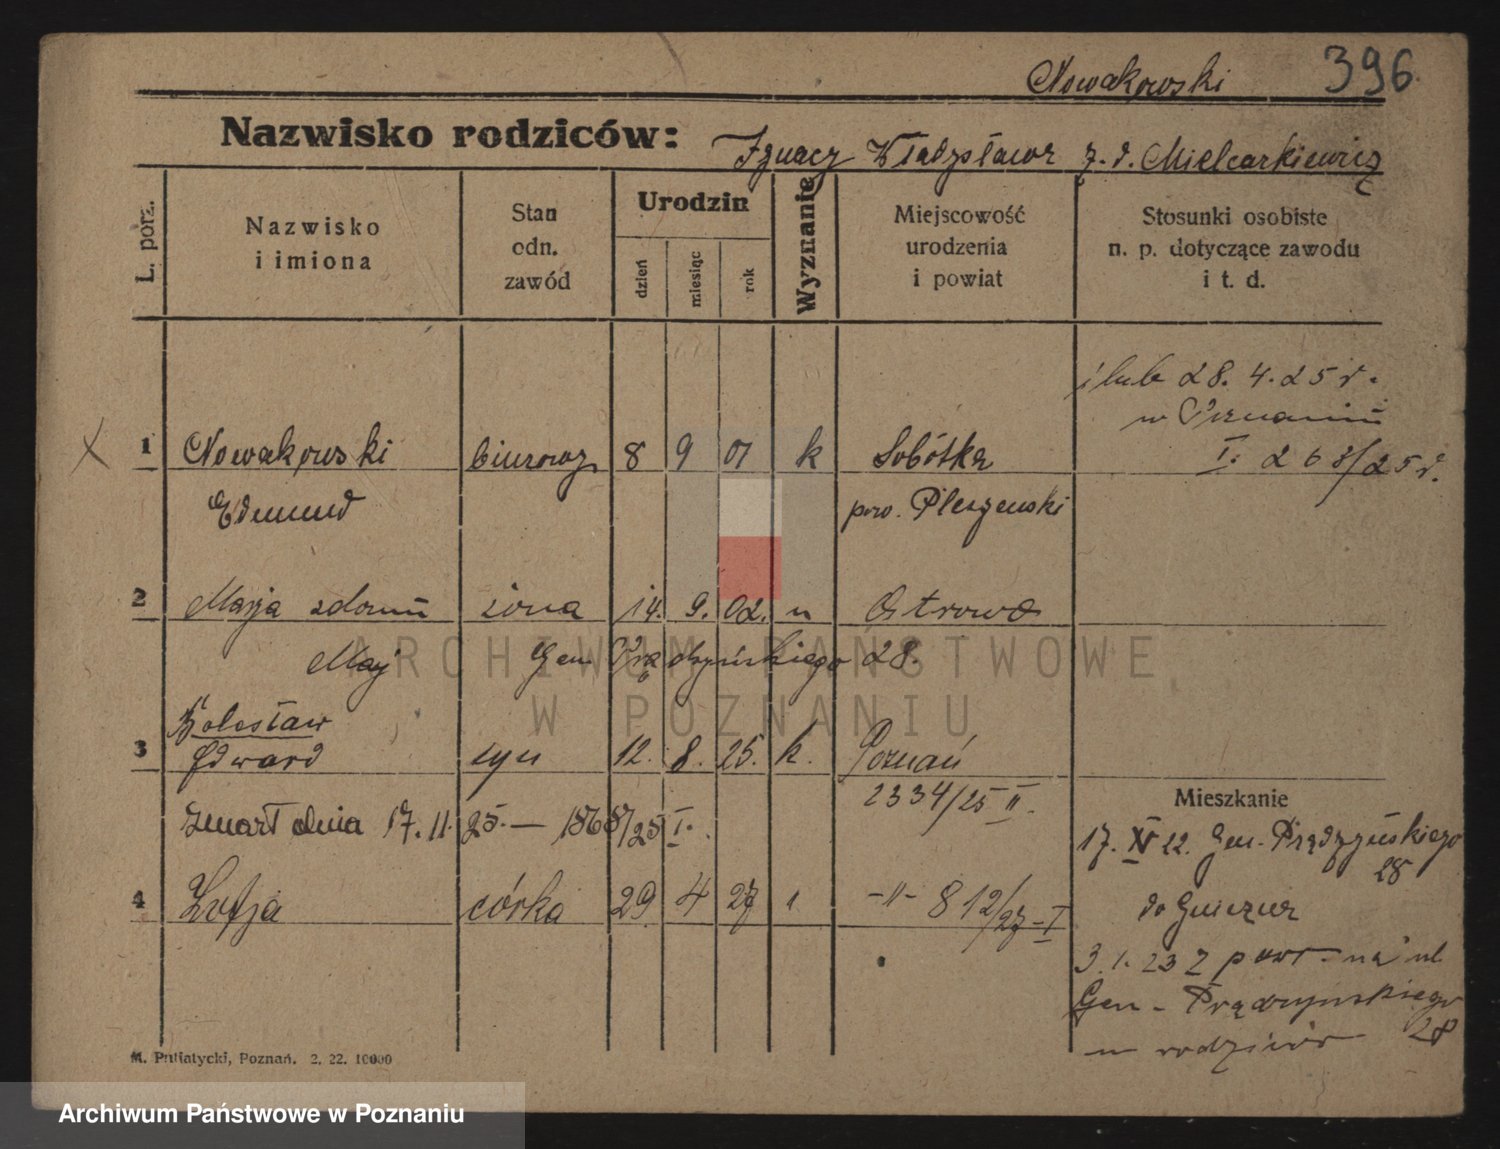 Nowakowski 396.
Nazwisko rodziców: Ignacz Władysława z. d. Mielcarkiewicz
L. porz.
Nazwisko i imiona
Stan odn. zawód
Urodzin
dzień
miesiąc
rok
Wyznanie
Miejscowość urodzenia i powiat
Stosunki osobiste n. p. dotyczące zawodu i t. d.
ślub 28. 4. 25 r.
w Poznaniu
I. 268/25 r.
1 Nowakowski biurowy 8 9 01 k Sobótka
Edmund pow. Pleszewski
2 Marja z domu żona 14. 9. 02. " Ostrowo
Maj Gen. Prądzyńskiego 28.
Bolesław
3 Edward syn 12. 8. 25. k. Poznań
2334/25 II.
zmarł dnia 17. 11. 25. — 1868/25 I.
4 Zofja córka 29 4 27 -"- 812/27 - I
Mieszkanie
17. XI 22. Gen. Prądzyńskiego
28
do
3. 1. 23 z powr. na ul.
Gen - Prądzyńskiego
28
u rodziców
M. Putiatycki, Poznań. 2. 22. 10000
ARCHIWUM PAŃSTWOWE
W POZNANIU
Archiwum Państwowe w Poznaniu